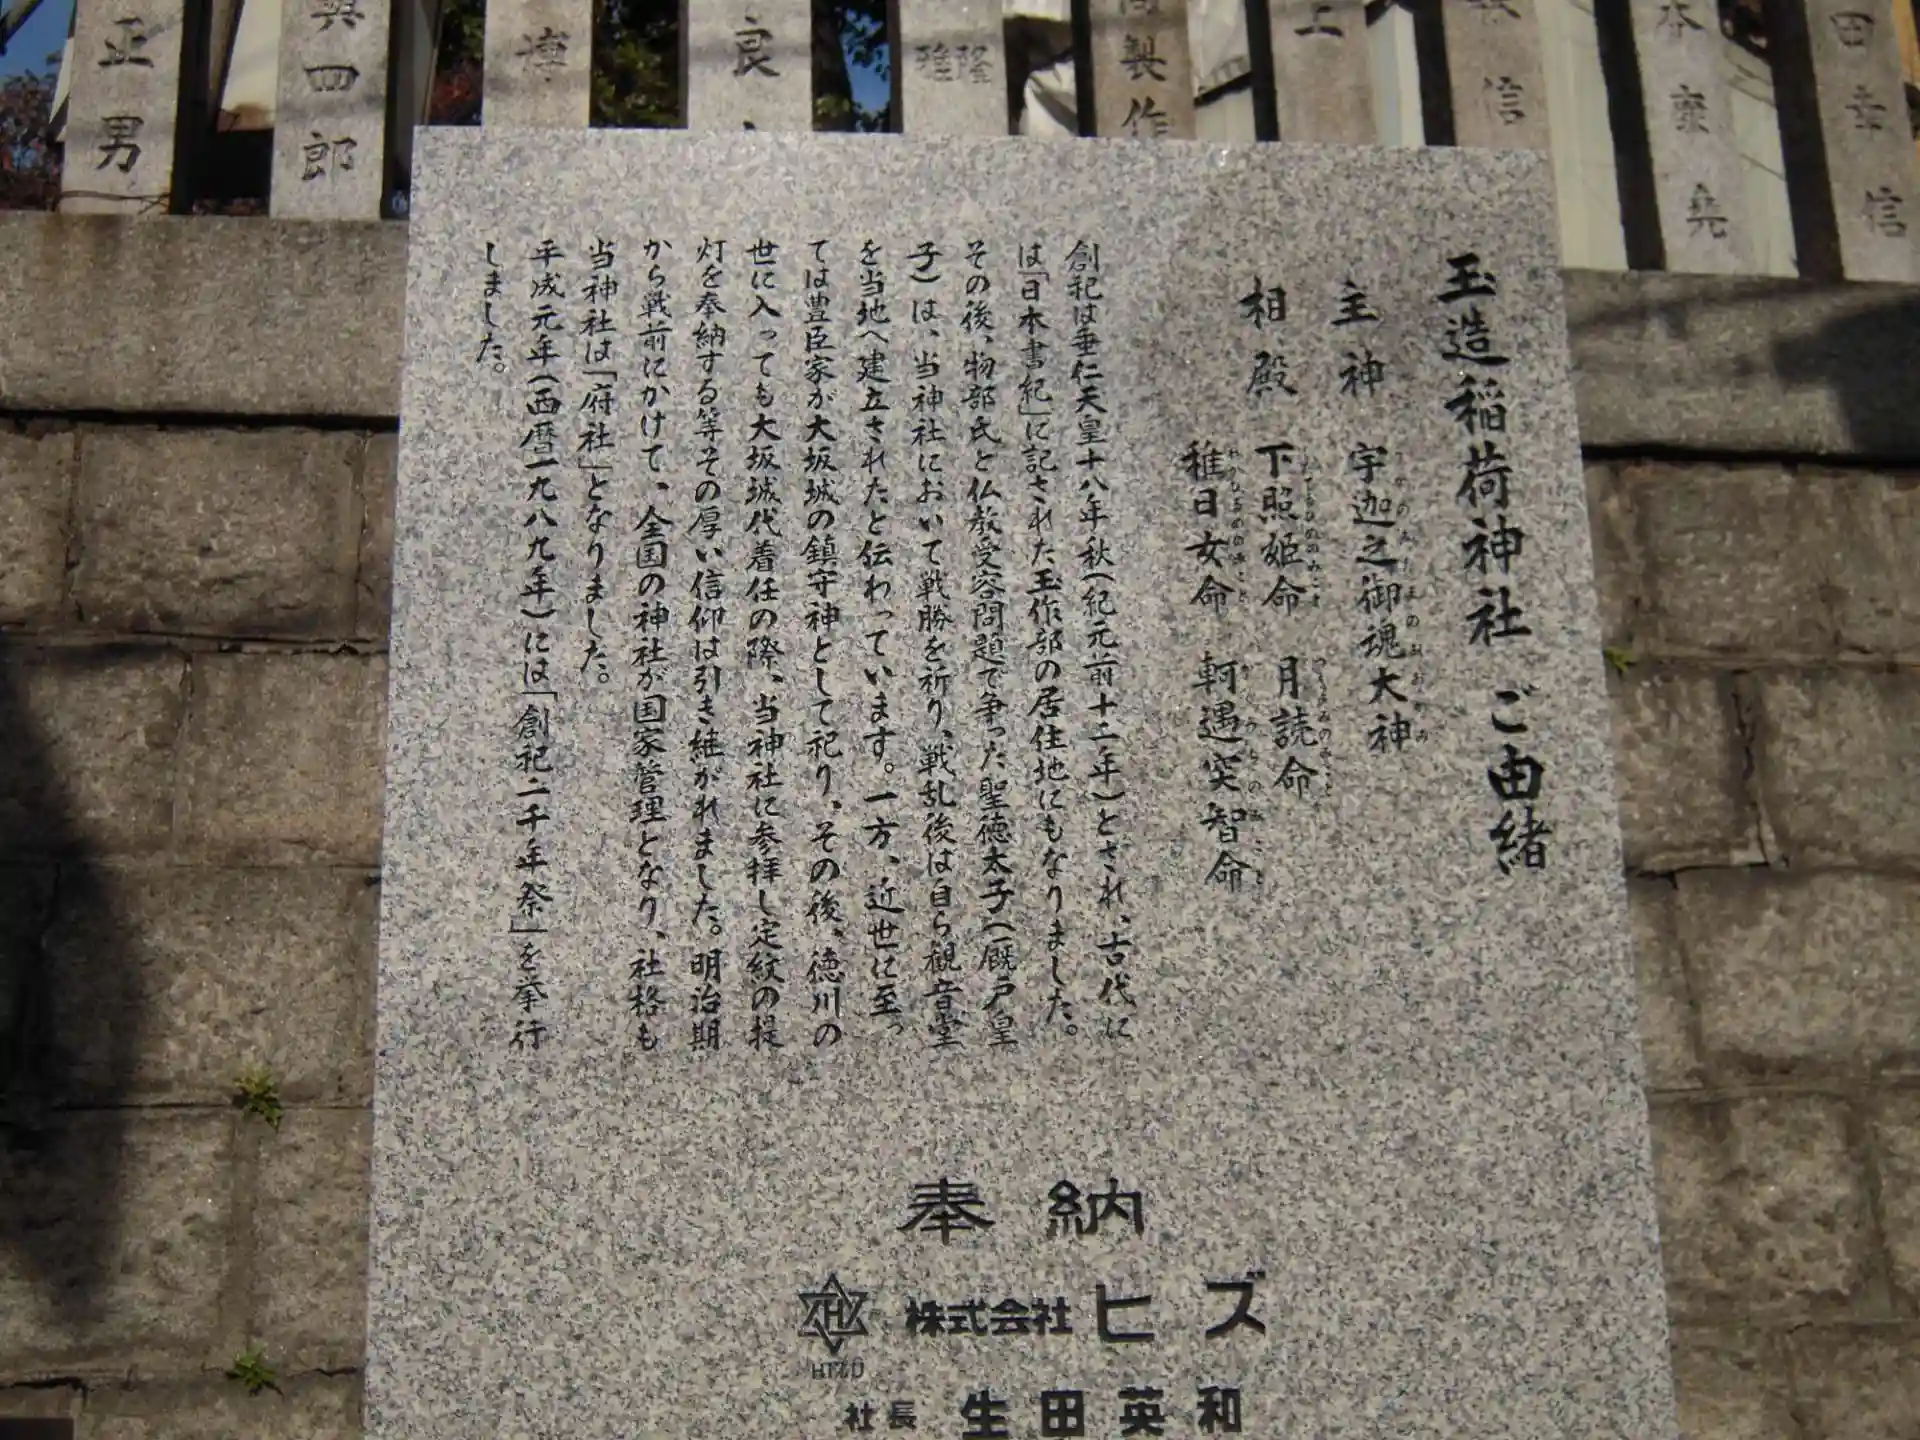 玉造稲荷神社 ご由緒
主神 宇迦之御魂大神
相殿 下照姫命 月読命
稚日女命 軻遇突智命
創祀は垂仁天皇十八年秋(紀元前十二年)とされ、古代に
は「日本書紀」に記された玉作部の居住地にもなりました。
その後、物部氏と仏教受容問題で争った聖徳太子(厩戸皇
子)は、当神社において戦勝を祈り、戦乱後は自ら観音堂
を当地へ建立されたと伝わっています。一方、近世に至っ
ては豊臣家が大坂城の鎮守神として祀り、その後、徳川の
世に入っても大坂城代着任の際、当神社に参拝し定紋の提
灯を奉納する等その厚い信仰は引き継がれました。明治期
から戦前にかけて、全国の神社が国家管理となり、社格も
当神社は「府社」となりました。
平成元年(西暦一九八九年)には「創祀二千年祭」を挙行
しました。
奉納
株式会社ヒズ
HIZU
社長 生田英和
正男
四郎
博
良
雅隆
製作
上
信
本
田幸信